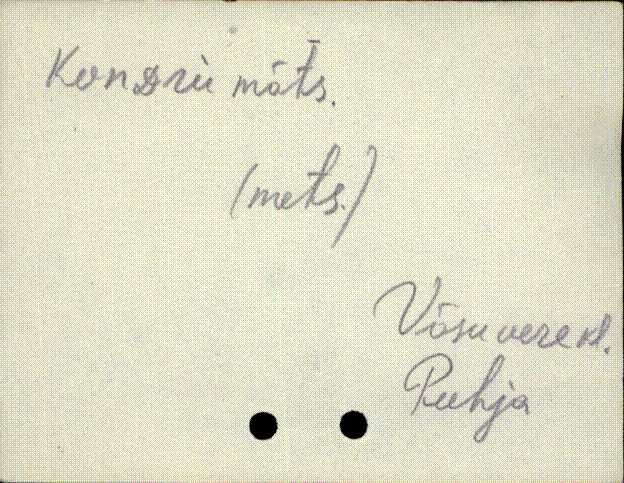 Kondrù mõts.
(mets.)
Võsuvere kl.
Puhja